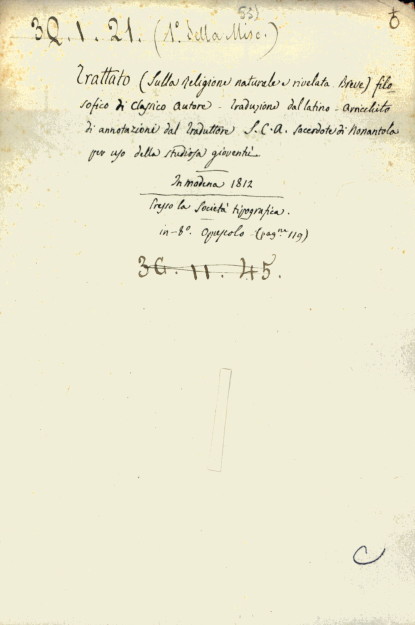 53)
3Q.1.21. (1º della Misc.)
Trattato (Sulla Religione naturale e rivelata. Breve) filo-
sofico di Classico Autore - Traduzione dal latino - Arricchito
di annotazioni dal Traduttore S.C.A. sacerdote di Nonantola
per uso della studiosa gioventù.
In Modena 1812
Presso la Società tipografica.
in-8º. Opuscolo (pag.ne 119)
3G.11.45.
C